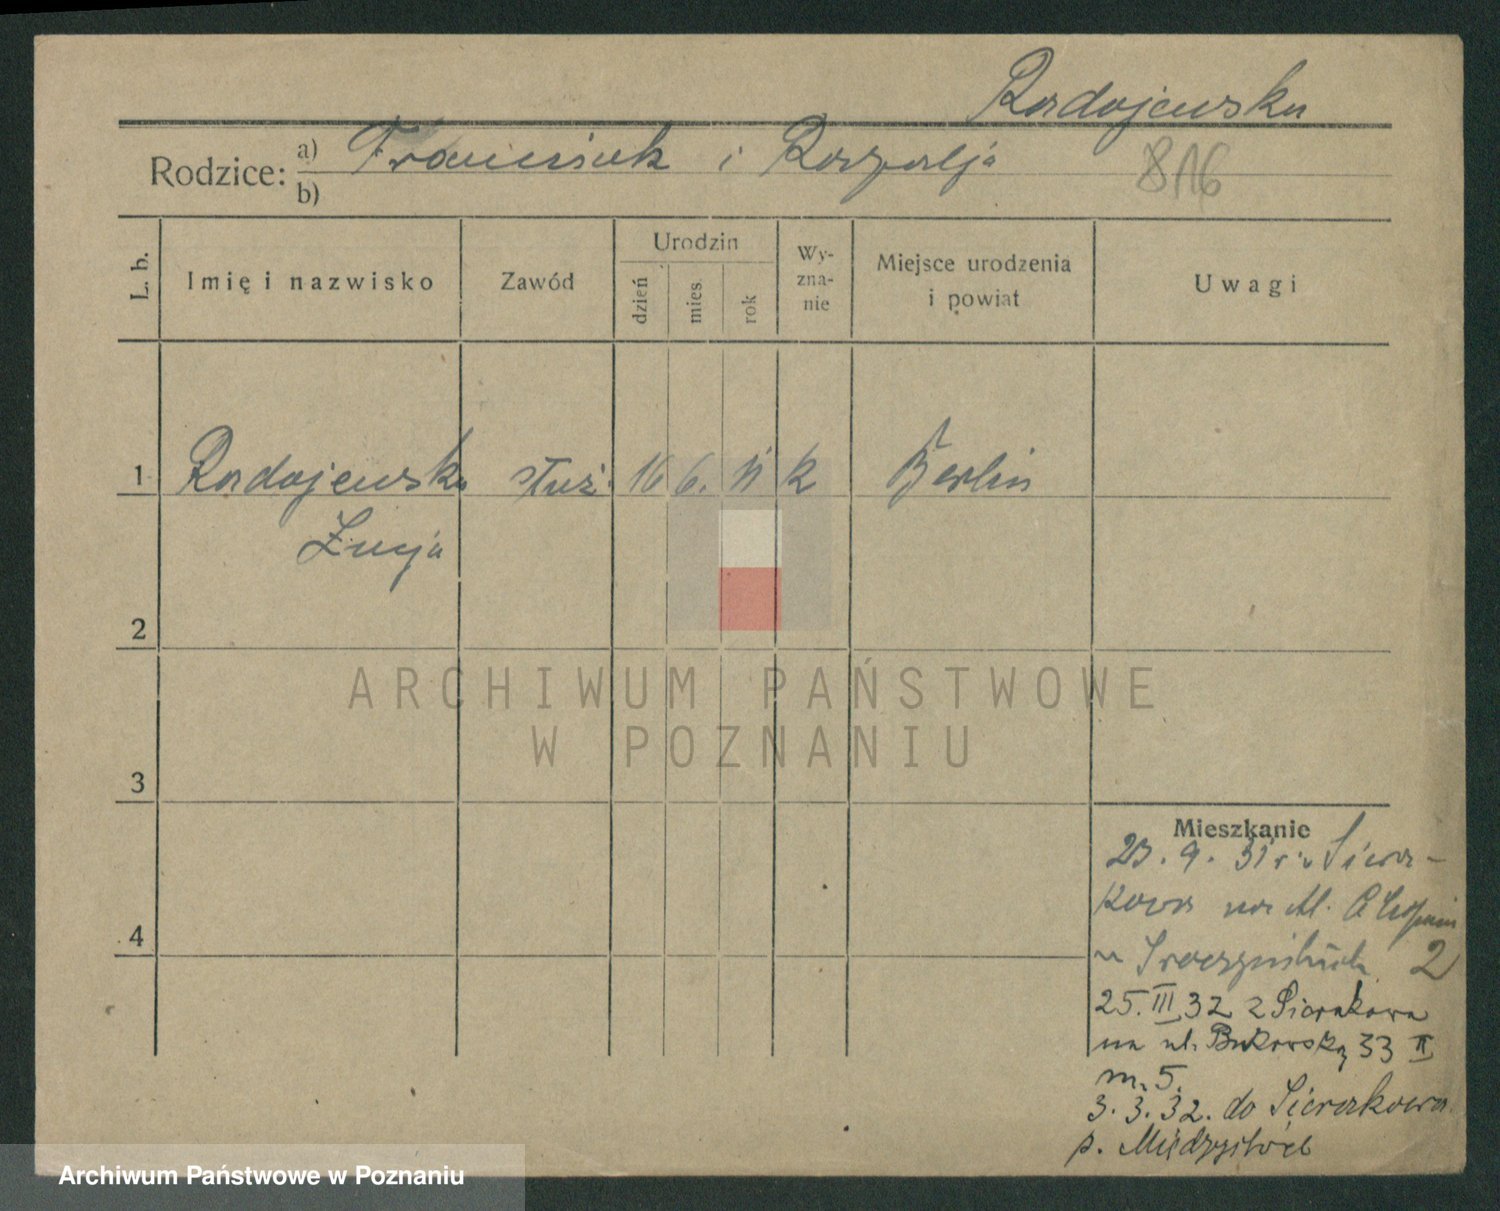 Radojewska
Rodzice: a) Franciszek i Rozalja
b)
816
L. b.
Imię i nazwisko
Zawód
Urodzin
dzień
mies.
rok
Wy-
zna-
nie
Miejsce urodzenia
i powiat
Uwagi
1 Radojewska służ. 16 6. 11 k Berlin
Łucja
2
3
4
Mieszkanie
23. 9. 31 r. z Siera-
kowa na ul.
u 2
25. III 32 z Sierakowa
na ul. Bukowską 33 II
m. 5.
3. 3. 32. do Sierakowa
p. Międzychód
ARCHIWUM PAŃSTWOWE
W POZNANIU
Archiwum Państwowe w Poznaniu